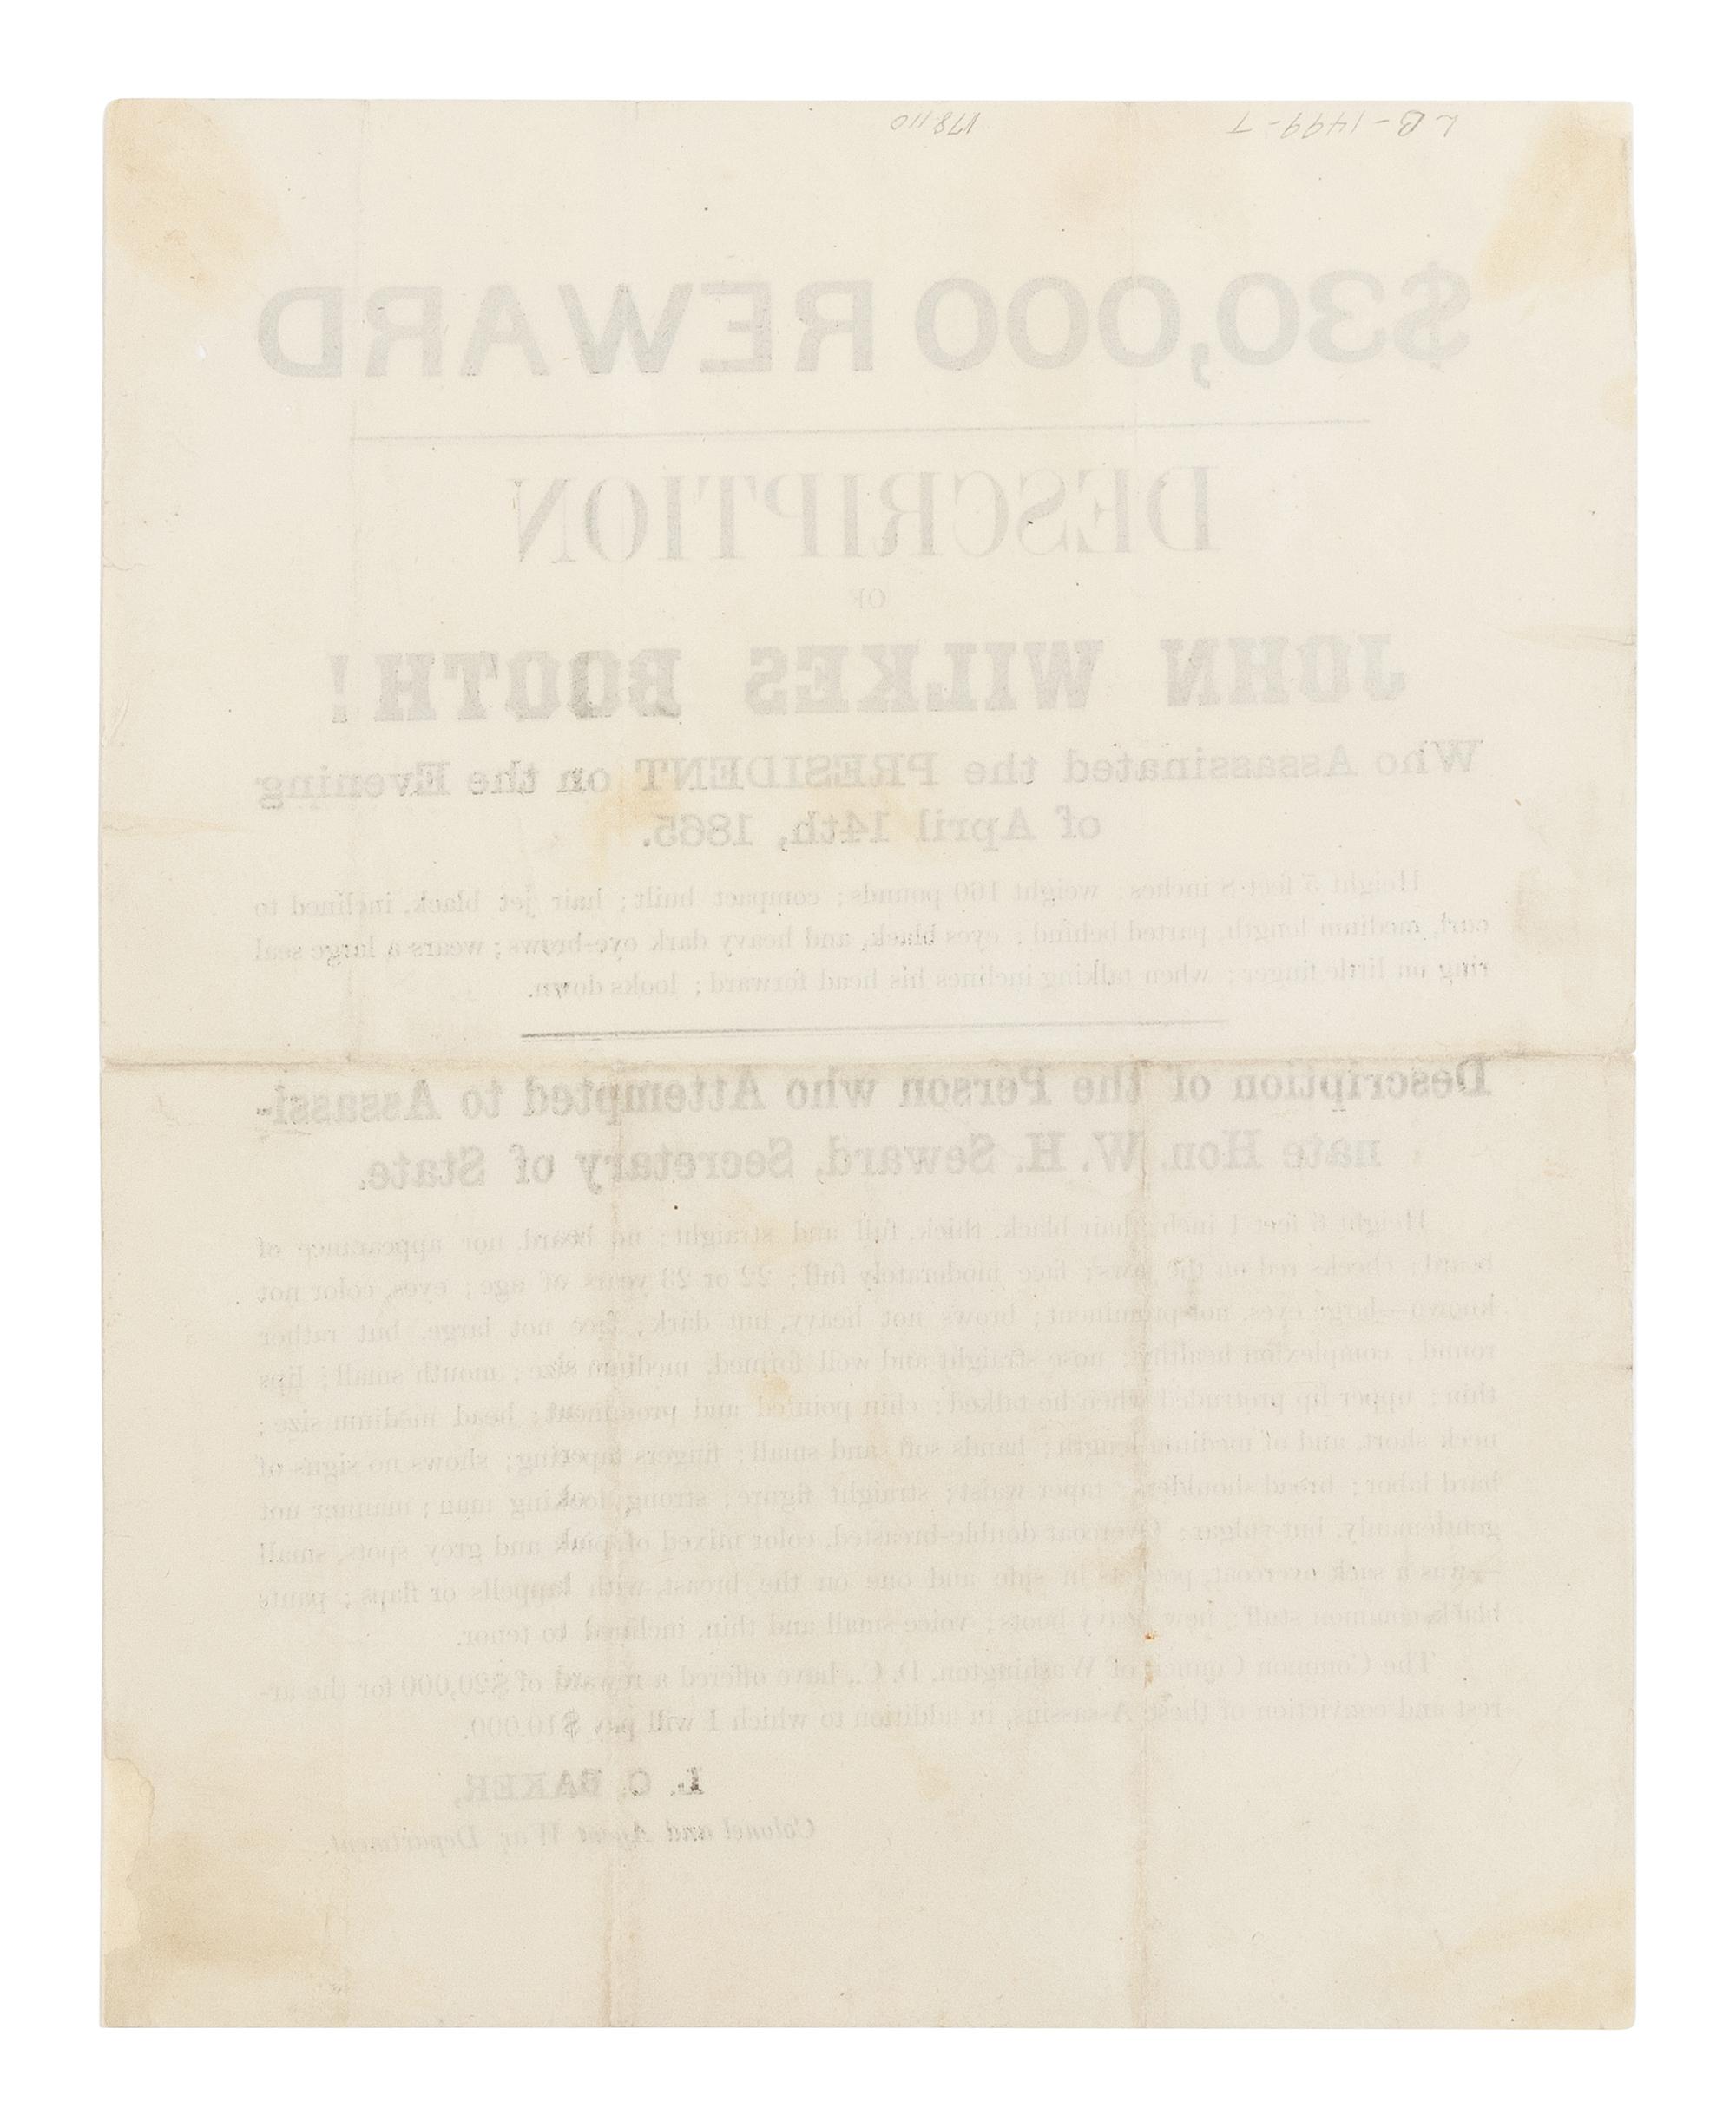 LB-1499-T
178110
$30,000 REWARD
DESCRIPTION
OF
JOHN WILKES BOOTH!
Who Assassinated the PRESIDENT on the Evening
of April 14th, 1865.
Height 5 feet 8 inches; weight 160 pounds; compact built; hair jet black, inclined to
curl, medium length, parted behind; eyes black, and heavy dark eye-brows; wears a large seal
ring on little finger; when talking inclines his head forward; looks down.
Description of the Person who Attempted to Assassi-
nate Hon. W. H. Seward, Secretary of State.
Height 6 feet 1 inch; hair black, thick, full and straight; no beard, nor appearance of
beard; cheeks red on the jaws; face moderately full; 22 or 23 years of age; eyes, color not
known—large eyes, not prominent; brows not heavy, but dark; face not large, but rather
round; complexion healthy; nose straight and well formed, medium size; mouth small; lips
thin; upper lip protruded when he talked; chin pointed and prominent; head medium size;
neck short, and of medium length; hands soft and small; fingers tapering; shows no signs of
hard labor; broad shoulders; taper waist; straight figure; strong looking man; manner not
gentlemanly, but vulgar; Overcoat double-breasted, color mixed of pink and grey spots, small
—was a sack overcoat, pockets in side and one on the breast, with lappells or flaps; pants
black, common stuff; new heavy boots; voice small and thin, inclined to tenor.
The Common Council of Washington, D. C., have offered a reward of $20,000 for the ar-
rest and conviction of these Assassins, in addition to which I will pay $10,000.
L. C. BAKER,
Colonel and Agent War Department.